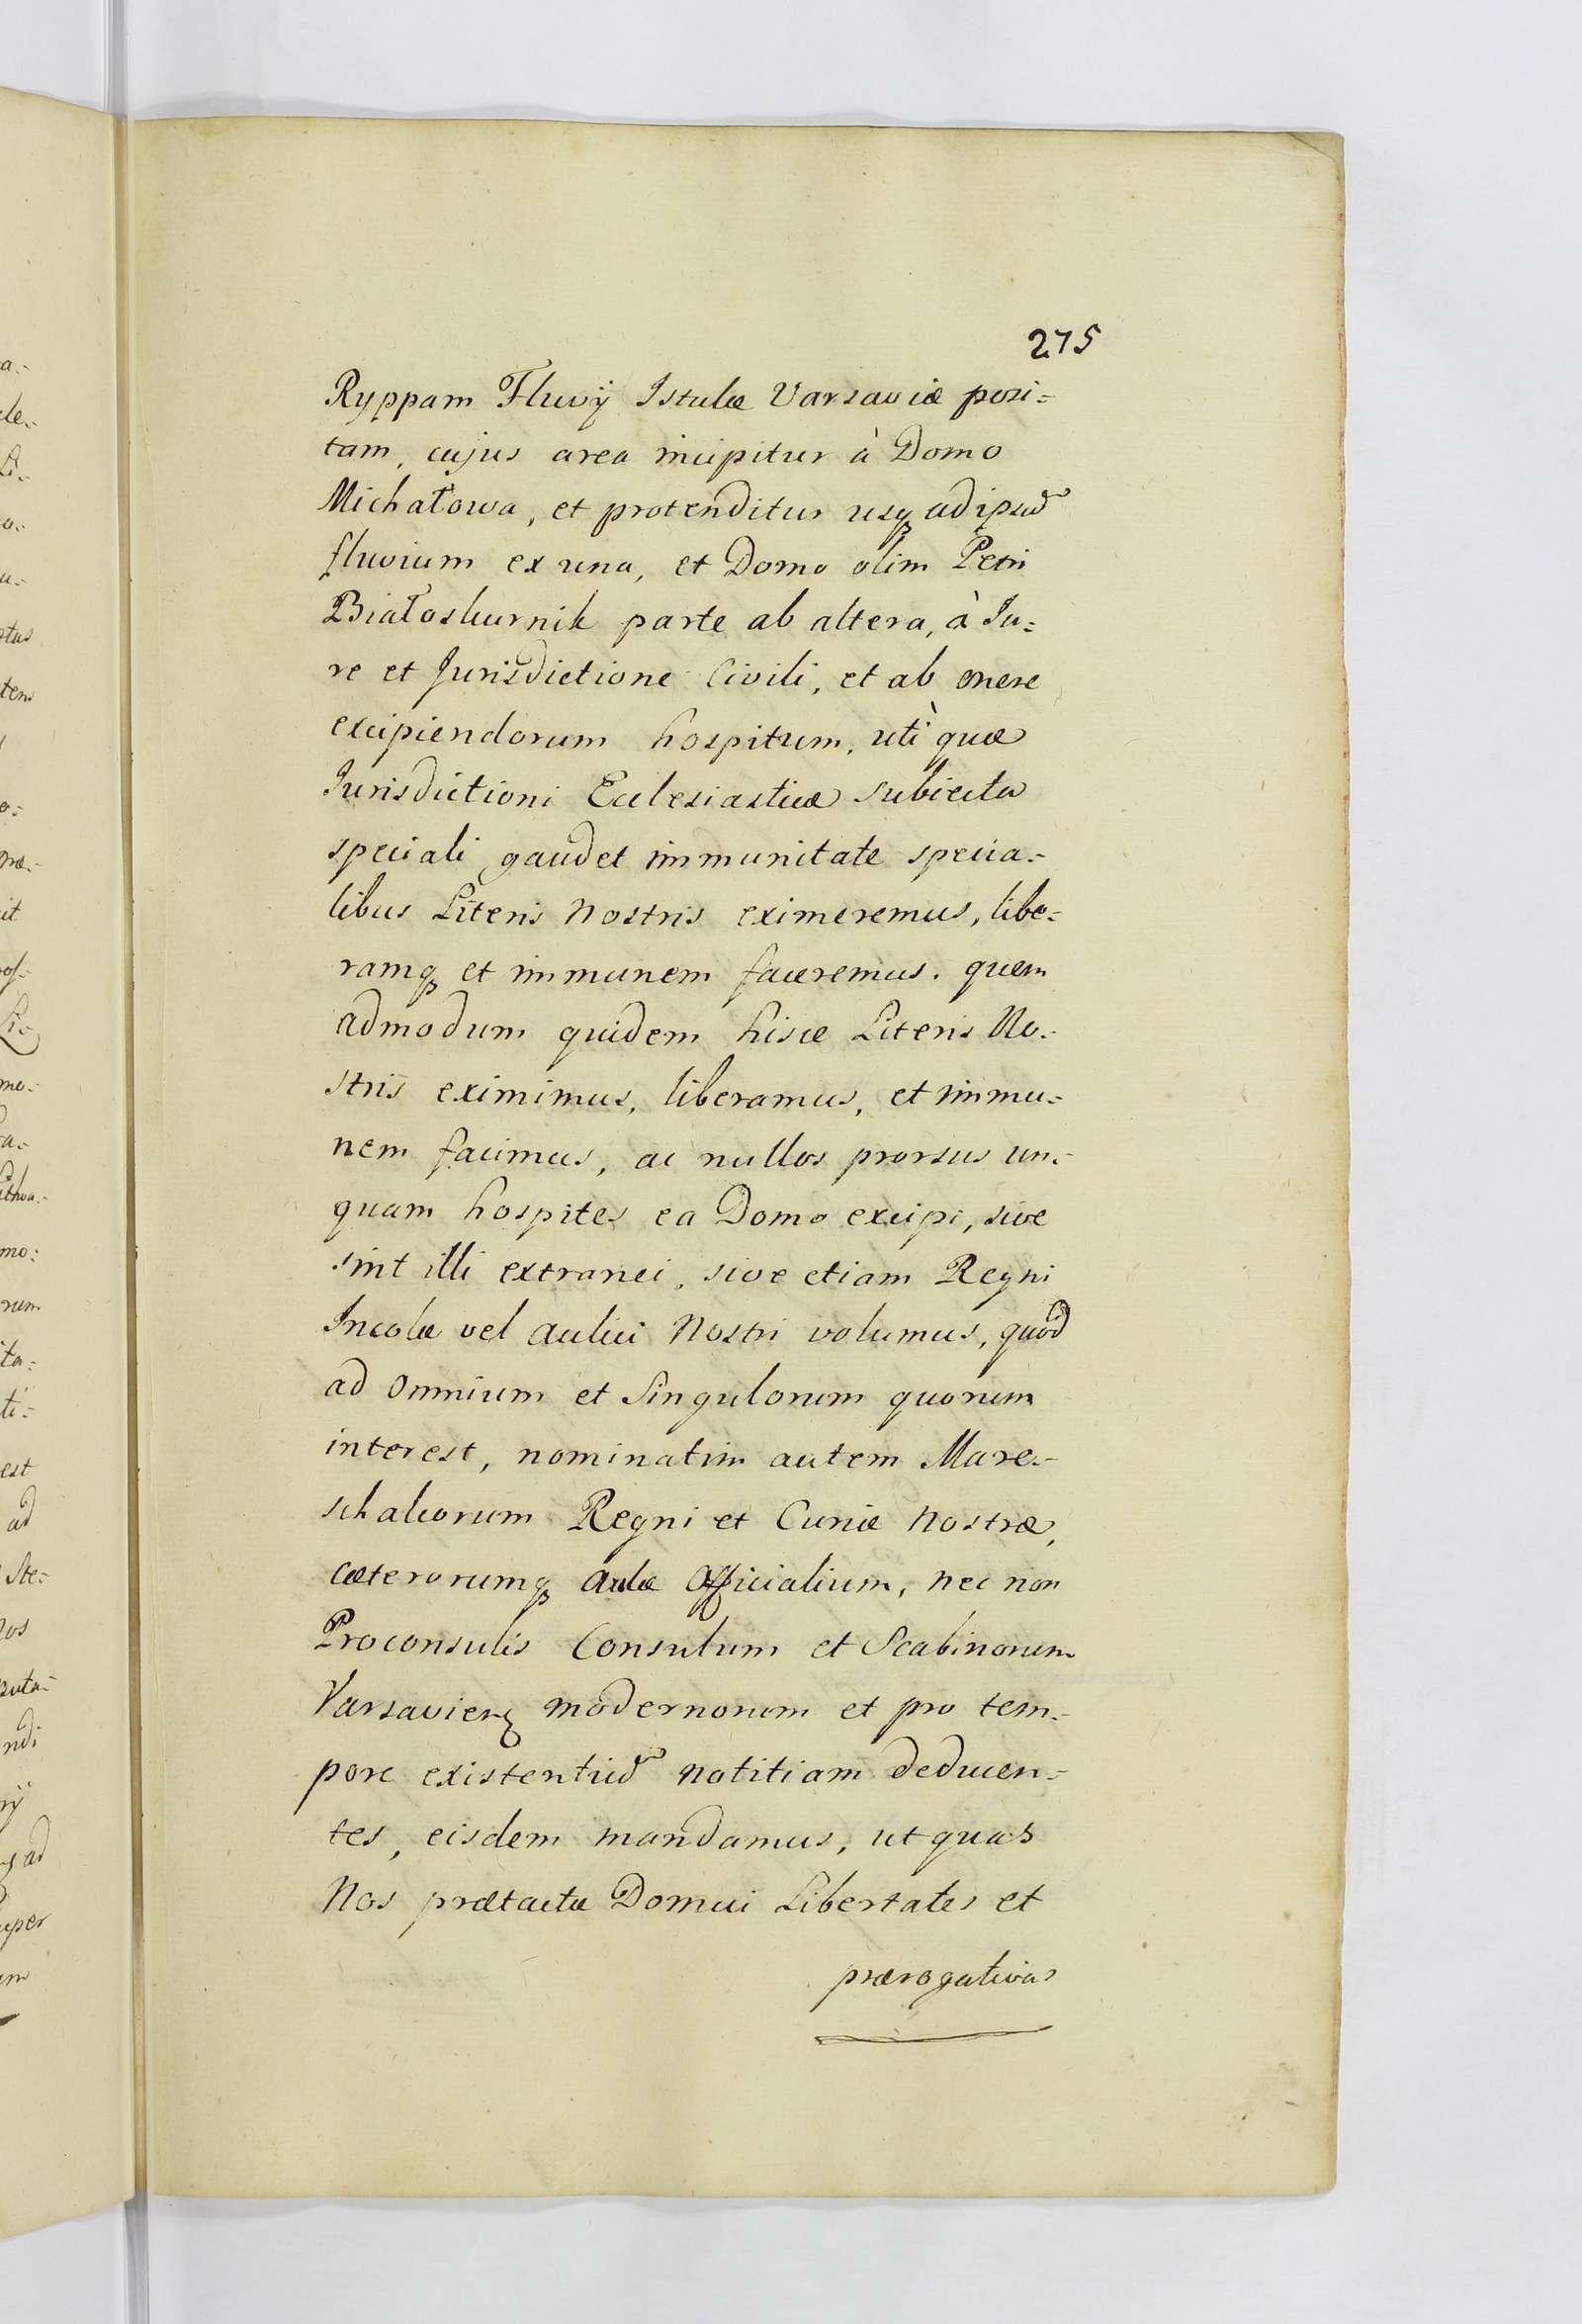 275
Ryppam Fluvÿ Istulæ Varsaviæ posi=
tam, cujus area incipitur à Domo
Michałowa, et protenditur usq ad ipsũ
fluvium ex una, et Domo olim Petri
Białoskurnik parte ab altera, à Ju=
re et Jurisdictione Civili, et ab onere
excipiendorum hospitum, utì quæ
Jurisdictioni Ecclesiasticæ subiecta
speciali gaudet immunitate specia=
libus Literis Nostris eximeremus, libe=
ramq et immunem faceremus. quem
admodum quidem hisce Literis No=
stris eximimus, liberamus, et immu=
nem facimus, ac nullos prorsus un=
quam hospites ea Domo excipi, sive
sint illi extranei, sive etiam Regni
Incolæ vel aulici Nostri volumus, quod
ad omnium et Singulorum quorum
interest, nominatim autem Mare=
schalcorum Regni et Curiæ Nostræ,
cæterorumq aulæ Officialium, nec non
Proconsulis Consulum et Scabinorum
Varsavien modernorum et pro tem=
pore existentiũ notitiam deducen=
tes, eisdem mandamus, ut quas
Nos prætactæ Domui Libertates et
prærogativas
a=
de=
Li=
o=
u=
tem
o=
it
Li=
mo=
a=
mo=
rum
ita=
ti=
est
ad
Ste=
nos
puta=
ndi
ad
uper
um